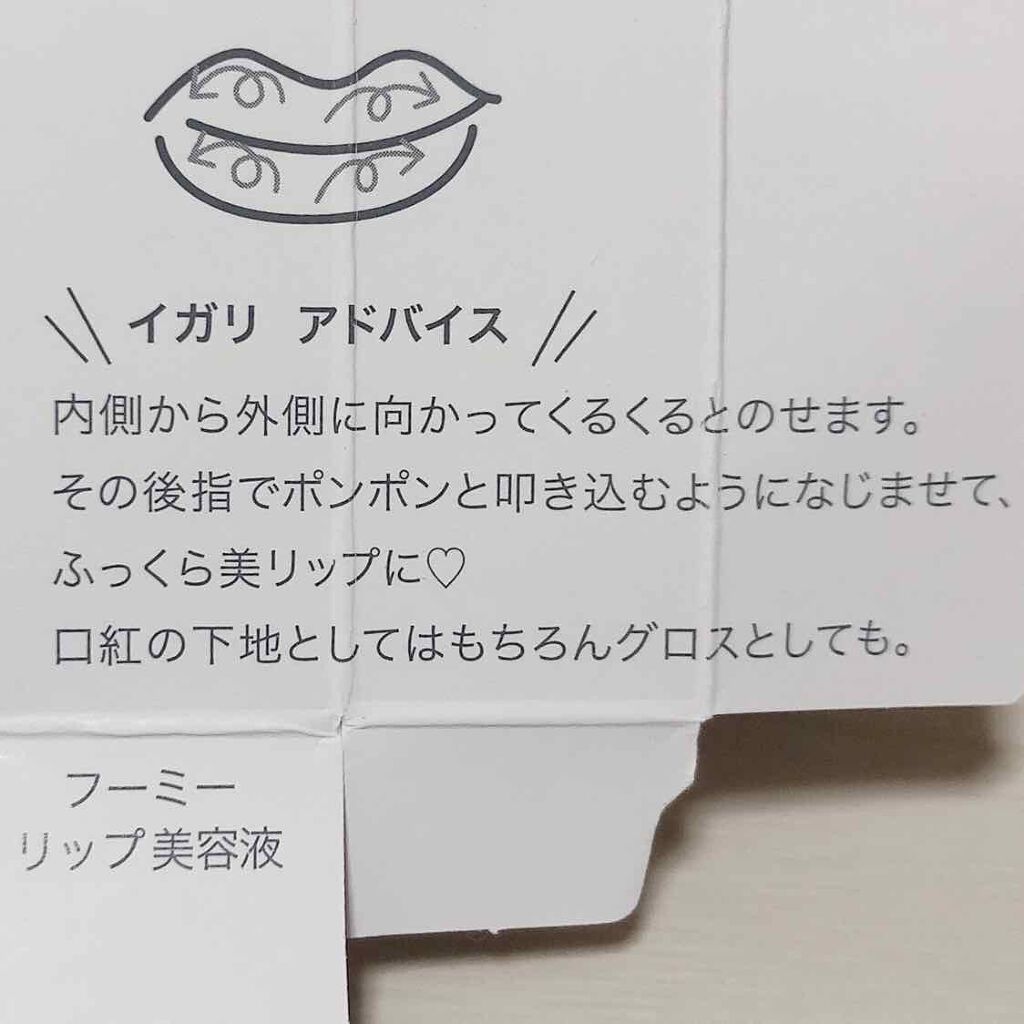 イガリ アドバイス
内側から外側に向かってくるくるとのせます。
その後指でポンポンと叩き込むようになじませて、
ふっくら美リップに♡
口紅の下地としてはもちろんグロスとしても。
フーミー
リップ美容液